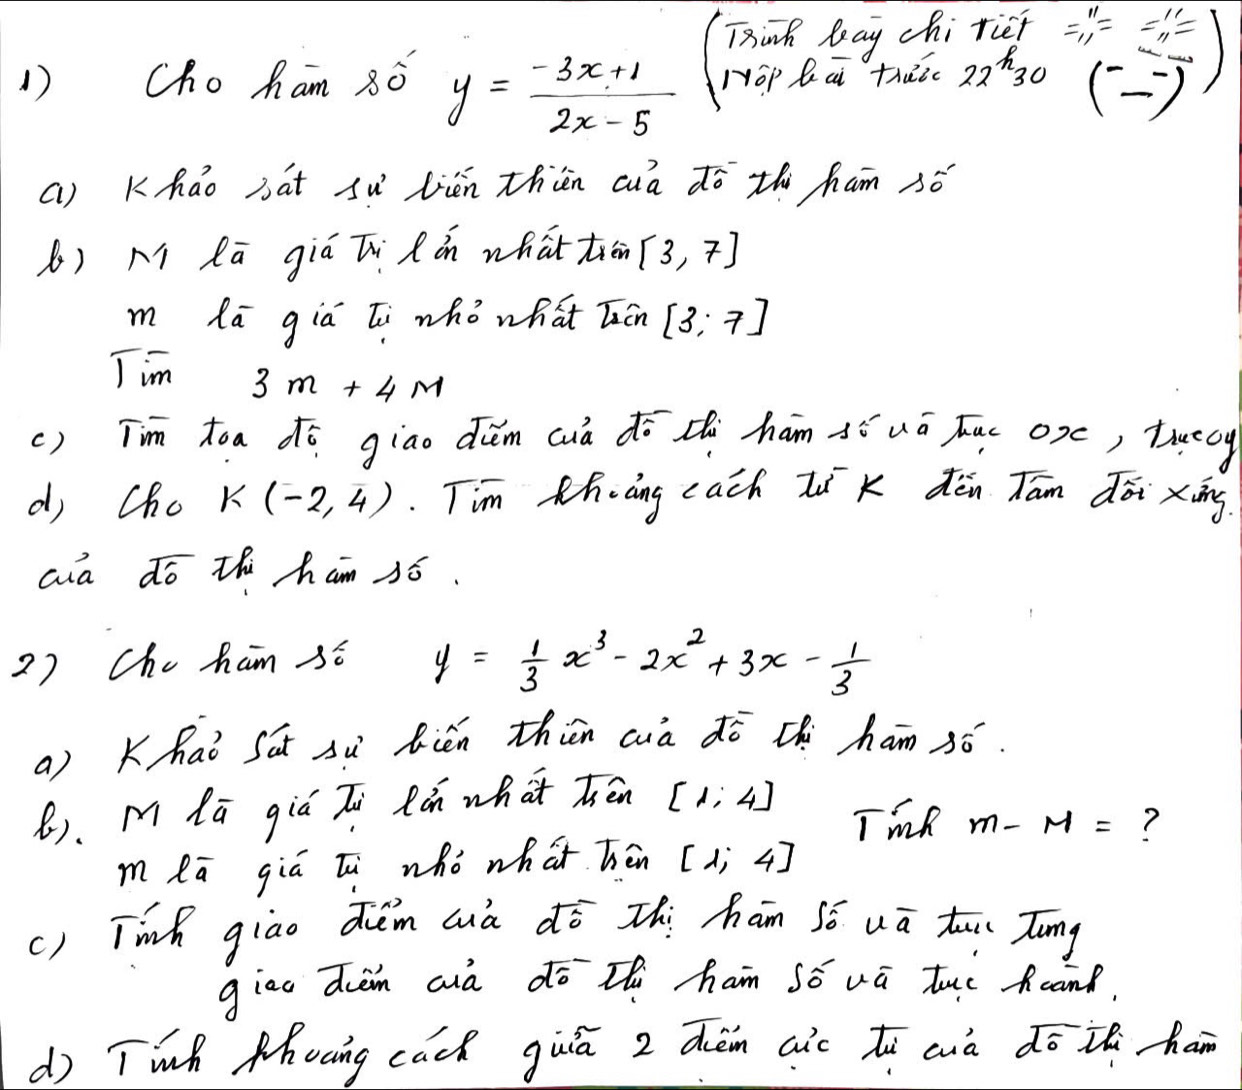 1) Cho hàm số y = \frac{-3x+1}{2x-5} (Trình bày chi tiết
Nộp bài trước 22h30 (-_-))
a) Khảo sát sự biến thiên của đồ thị hàm số
b) M là giá trị lớn nhất trên [3, 7]
m là giá trị nhỏ nhất trên [3; 7]
Tìm 3m + 4M
c) Tìm tọa độ giao điểm của đồ thị hàm số và trục ox, trục oy
d) Cho K(-2, 4). Tìm khoảng cách từ K đến Tâm đối xứng.
của đồ thị hàm số.
2) Cho hàm số y = \frac{1}{3}x³ - 2x² + 3x - \frac{1}{3}
a) Khảo sát sự biến thiên của đồ thị hàm số.
b). M là giá trị lớn nhất trên [1; 4]
Tính m - M = ?
m là giá trị nhỏ nhất trên [1; 4]
c) Tính giao điểm của đồ thị hàm số và trục tung
giao điểm của đồ thị hàm số và trục hoành.
d) Tính khoảng cách giữa 2 điểm cực trị của đồ thị hàm